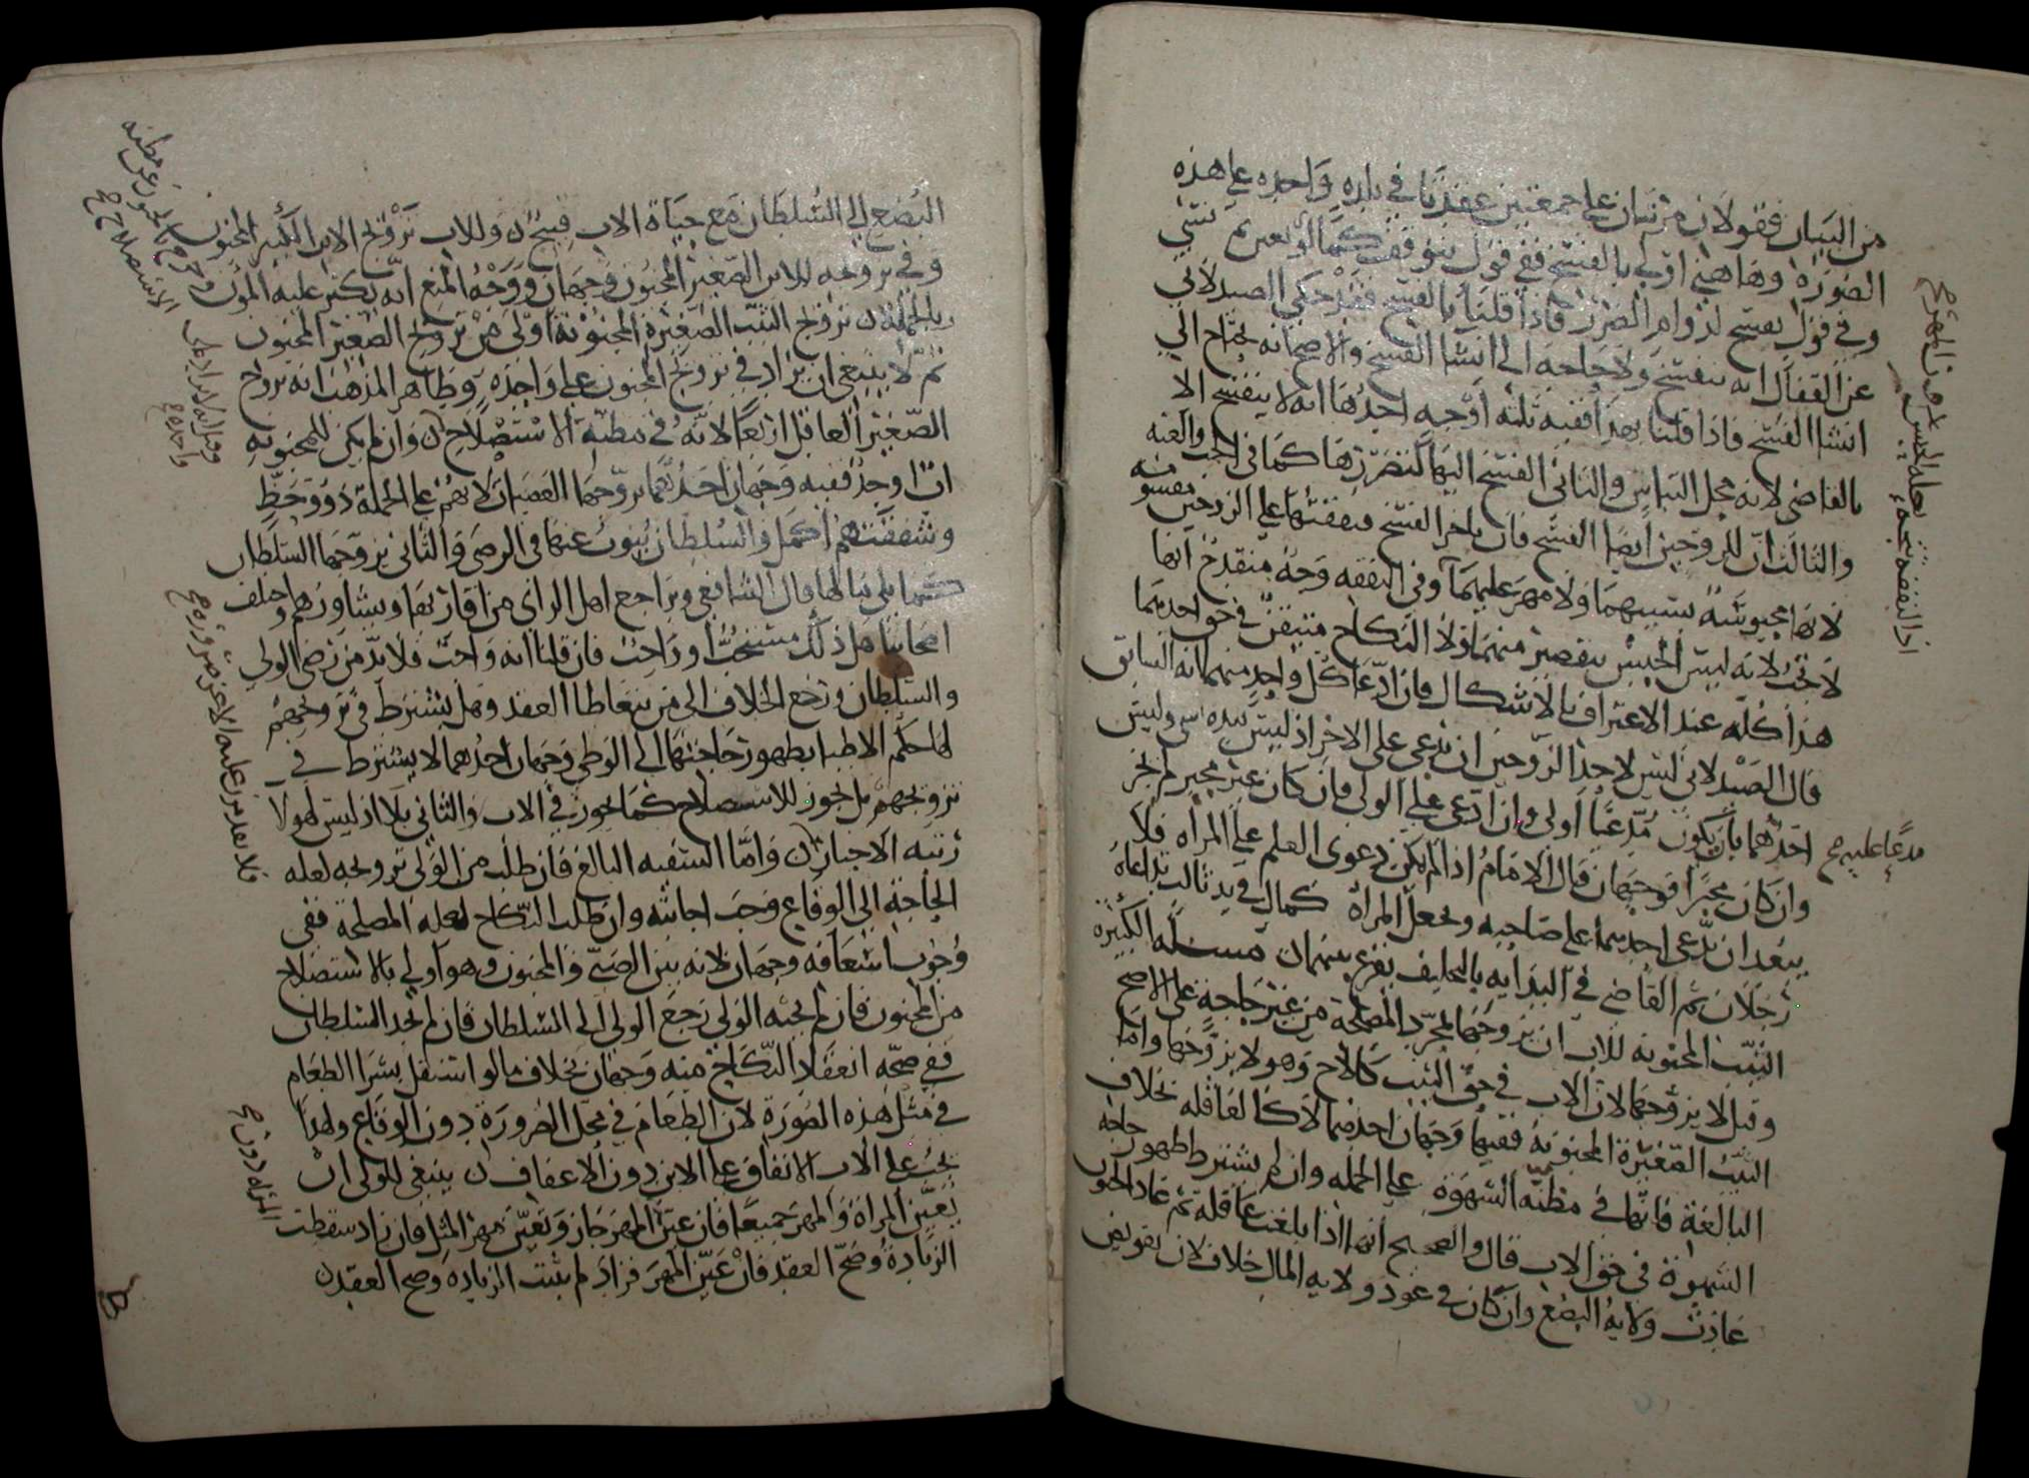 من البيان فقولان مرتبان على جمعتين عقدتا في بلدة واحدة على هذه
الصورة وهاهنا اولى بالفسخ ففي قول يتوقف كما لو تعين ثم نسي
وفي قول يفسخ لدوام الضرر فاذا قلنا بالفسخ فقد حكى الصيدلاني
عن القفال انه ينفسخ ولا حاجة الى انشا الفسخ والاصح انه يحتاج الى
انشا الفسخ فاذا قلنا بهذا ففيه ثلثة اوجه احدها انه لا ينفسخ الا
بالقاضي لانه محل التباس والثاني الفسخ اليها لتضررها كما في الجب والعنة
والثالث ان للزوجين ايضا الفسخ فان تاخر الفسخ فنفقتها على الزوجين مقسومة
لانها محبوسة بسببهما ولا مهر عليهما وفي النفقة وجه منقدح انها
لا تجب لانه ليس الحبس بتقصير منهما ولا النكاح متيقن في حق احدهما
هذا كله عند الاعتراف بالاشكال فان ادعا كل واحد منهما انه السابق
قال الصيدلاني ليس لاحد الزوجين ان يدعي على الاخر اذ ليس بيده شي وليس
احدهما بان يكون مدعيا اولى وان ادعى على الولي فان كان غير مجبر لم يجز
وان كان مجبرا فوجهان قال الامام اذا لم يمكن دعوى العلم على المراة فلا
يبعد ان يدعي احدهما على صاحبه وتجعل المراة كمال في يد ثالث تداعاه
رجلان ثم القاضي في البداية بالتحليف يقرع بينهما مسلة الكبيرة
الثيب المجنونة للاب ان يزوجها لمجرد المصلحة من غير حاجة على الاصح
وقيل لا يزوجها لان الاب في حق الثيب كالاخ وهو لا يزوجها واما
الثيب الصغيرة المجنونة ففيها وجهان احدهما لا كالعاقلة بخلاف
البالغة فانها في مظنة الشهوة على الجملة وان لم يشترط ظهور حاجة
الشهوة في حق الاب قال والصحيح انها اذا بلغت عاقلة ثم عاد الجنون
عادت ولاية البضع وان كان في عود ولاية المال خلاف لان تفويض
مدعا عليه صح
البضع الى السلطان مع حياة الاب قبيح وللاب تزويج الابن الكبير المجنون
وفي تزويجه للابن الصغير المجنون وجهان ووجه المنع انه يكثر عليه المون
وبالجملة تزويج الثيب الصغيرة المجنونة اولى من تزويج الصغير المجنون
ثم لا ينبغي ان يزاد في تزويج المجنون على واحدة وظاهر المذهب انه يزوج
الصغير العاقل اربعا لانه في مظنة الاستصلاح وان لم يكن للمجنونة
اب اوجد ففيه وجهان احدهما يزوجها العصبات لانهم على الجملة ذوو حظ
وشفقتهم اكمل والسلطان ينوب عنها في الرضى والثاني يزوجها السلطان
كما يلي مالها قال الشافعي ويراجع اهل الراي من اقاربها ويشاورهم وخلف
اصحابنا هل ذلك مستحب او واجب فان قلنا انه واجب فلا بد من رضى الولي
والسلطان ورجع الخلاف الى من يتعاطا العقد وهل يشترط في تزويجهم
لها حكم الاطبا بظهور حاجتها الى الوطي وجهان احدهما لا يشترط في
تزويجهم بل يجوز للاستصلاح كما يجوز في الاب والثاني بلا اذ ليس لهولا
رتبة الاجبار واما السفيه البالغ فان طلب من الولي تزويجه لعلة
الحاجة الى الوقاع وجب اجابته وان طلب النكاح لعلة المصلحة ففي
وجوب اسعافه وجهان لانه بين الصبي والمجنون وهو اولى بالاستصلاح
من المجنون فان لم يجبه الولي رجع الولي الى السلطان فان لم يجد السلطان
ففي صحة انعقاد النكاح منه وجهان بخلاف ما لو استقل بشرا الطعام
في مثل هذه الصورة لان الطعام في محل الضرورة دون الوقاع ولهذا
يجب على الاب الانفاق على الابن دون الاعفاف ينبغي للولي ان
يعين المراة والمهر جميعا فان عين المهر جاز وتعين مهر المثل فان زاد سقطت
الزيادة وصح العقد فان عين المهر فزاد لم يثبت الزيادة وصح العقد